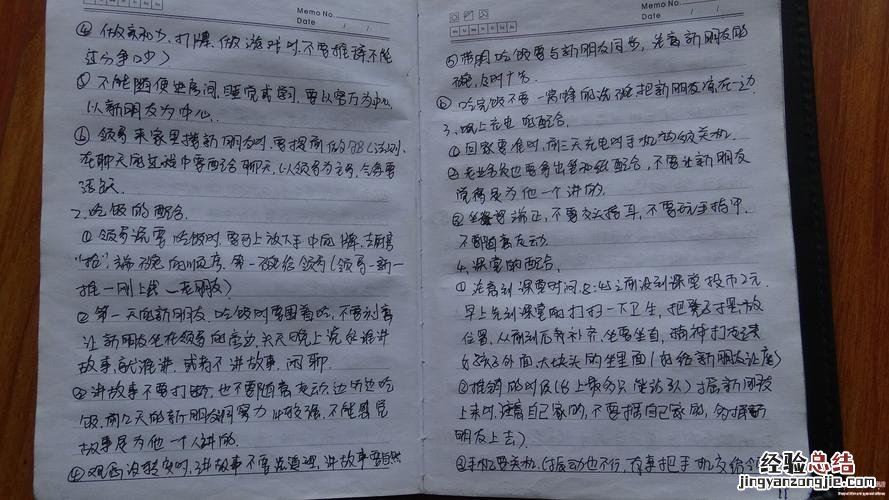 Memo No.
Date / /
④ 做亲和力，打牌、做游戏时，不要推诿，不能
过分争吵）
⑤ 不能随便进房间，睡觉或学习，要以客厅为中心，
以新朋友为中心。
⑥ 领导来家里接新朋友时，要提前做
在聊天的过程中要配合聊天，以领导为主导，
活跃
2、吃饭的配合。
① 领导说要吃饭时，要马上放下手中的牌，
端碗的顺序，第一碗给领导（领导—新—
推—刚上线—老朋友）
② 第一天的新朋友，吃饭时要围着吃，不要刻意
让新朋友坐在领导的旁边，头天晚上说是谁讲
故事，就谁讲，或者不讲故事，闲聊。
③ 讲故事不要打断，也不要随意走动，边听边吃
饭，前2天的新朋友洞察力比较强，不能感觉
故事是为他一个人讲的。
④ 观念没转变时，讲故事不要说道理，讲故事要自然
Memo No.
Date / /
⑤ 吃饭要与新朋友同步，注意新朋友的
碗，及时
⑥ 吃完饭不要一窝蜂的洗碗，把新朋友凉在一边
3、晚上充电的配合。
① 回家要准时，前三天充电时手机必须关机。
② 老业务员也要拿出笔和纸配合，不要让新朋友
觉得是为他一个讲的。
③ 坐姿要端正，不要交头接耳，不要玩手指甲，
不要随意走动。
4、课堂的配合。
① 注意到课堂时间 没到课堂投币2元，
早上先到课堂的打扫一下卫生，把凳子摆放
位置，从前到后 补齐，坐要坐直，
外面，大块头的坐里面（好给新朋友让座）
② 推销 时段 新朋友
上来时，注意自己家的，不要摇自己家的，
朋友上去）
③ 手机要关机（振动也不行，
经验总结
jingyanzongjie.com